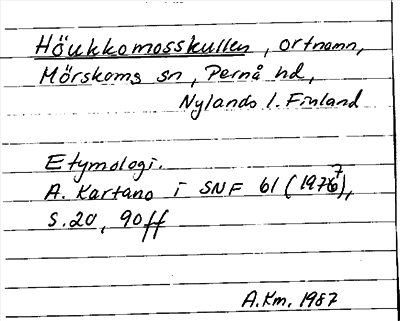 Höukkomosskullen, ortnamn,
Mörskoms sn, Pernå hd,
Nylands l. Finland
Etymologi.
A. Kartano i SNF 61 (1977),
s. 20, 90ff
A.Km. 1987